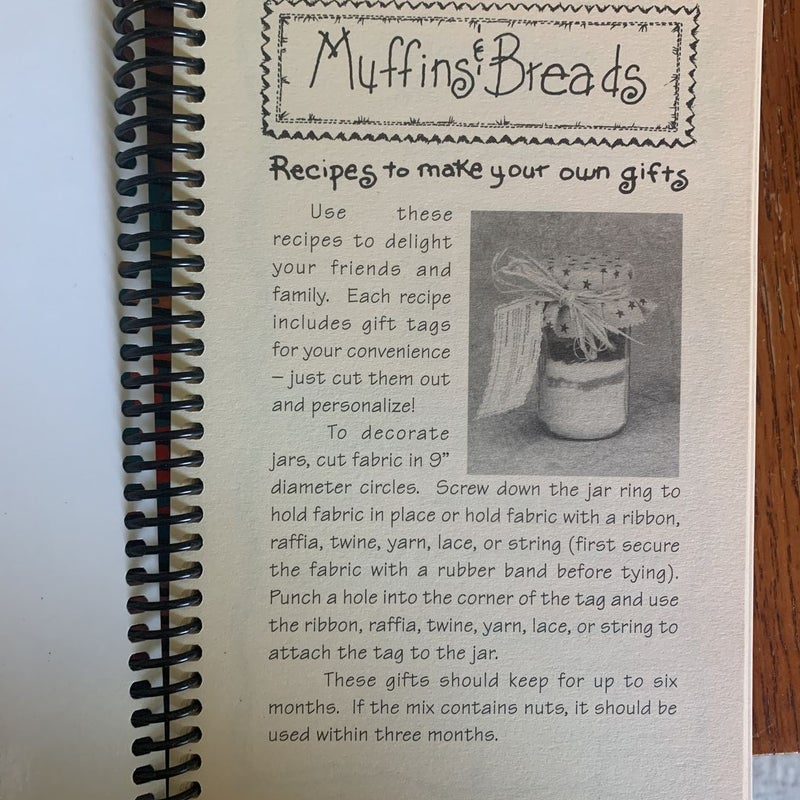 Muffins & Breads
Recipes to make your own gifts
Use these
recipes to delight
your friends and
family. Each recipe
includes gift tags
for your convenience
– just cut them out
and personalize!
To decorate
jars, cut fabric in 9”
diameter circles. Screw down the jar ring to
hold fabric in place or hold fabric with a ribbon,
raffia, twine, yarn, lace, or string (first secure
the fabric with a rubber band before tying).
Punch a hole into the corner of the tag and use
the ribbon, raffia, twine, yarn, lace, or string to
attach the tag to the jar.
These gifts should keep for up to six
months. If the mix contains nuts, it should be
used within three months.